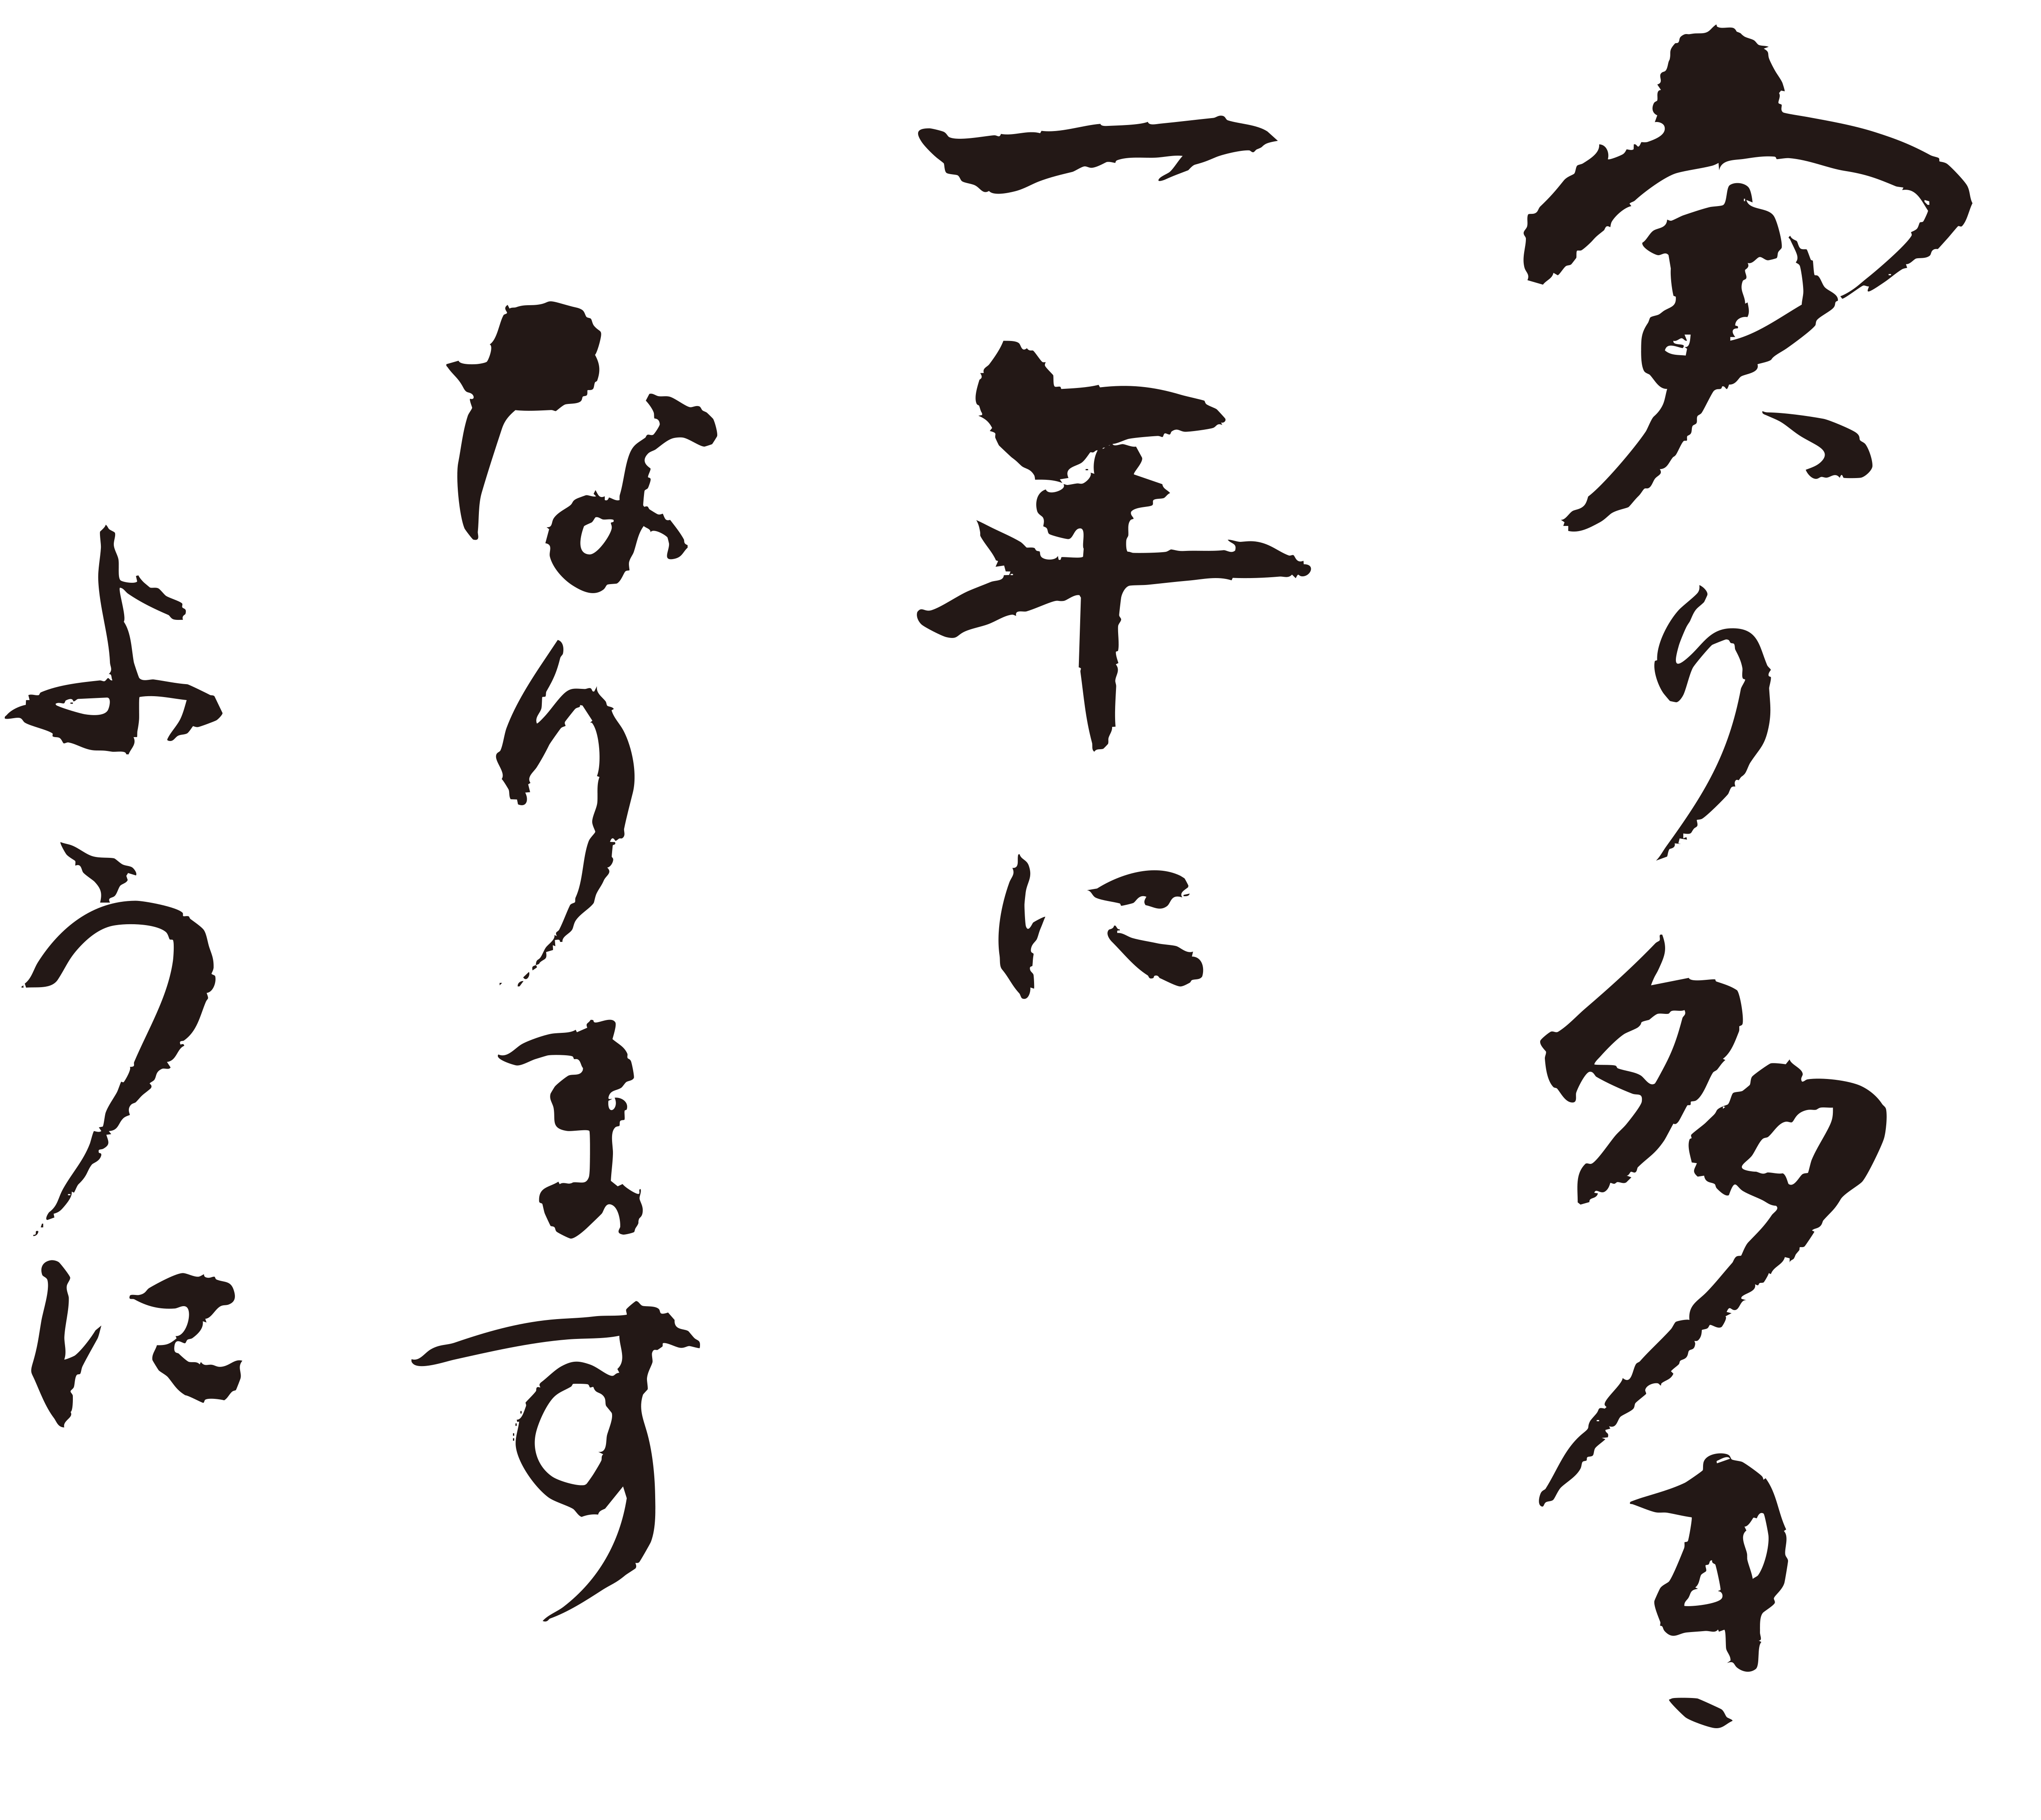 実り多き
一年に
なります
ように